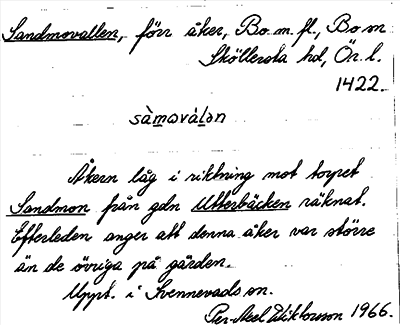 Sandmovallen, förr åker, Bo m. fl., Bo sn
Sköllersta hd, Ör. l.
1422.
sàmovàlən
Åkern låg i riktning mot torpet
Sandmon från gdn Utterbäcken räknat.
Efterleden anger att denna åker var större
än de övriga på gården.
Uppt. i Svennevads sn.
Per-Axel Wiktorsson 1966.